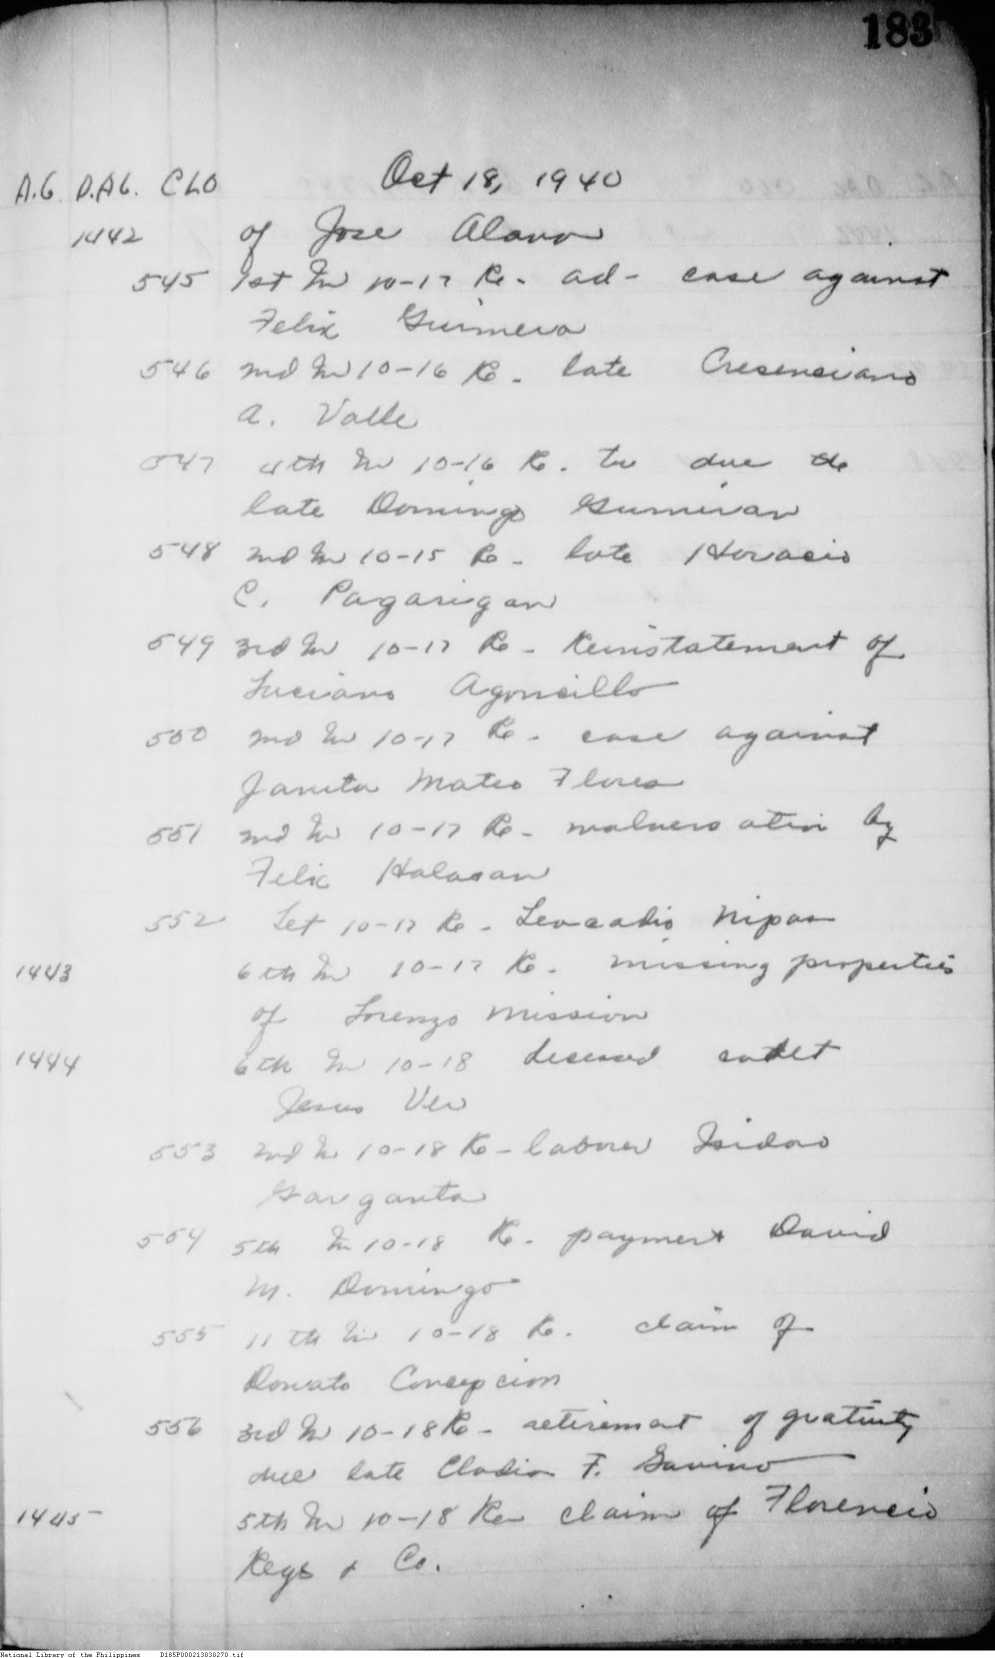 183
A.G. D.AG. CLO Oct 18, 1940
1442 of Jose Alano
545 1st In 10-17 Re. ad- case against
Felix Guimera
546 2nd In 10-16 Re. late Cresenciano
A. Valle
547 4th In 10-16 Re. to due the
late Domingo Gumiran
548 2nd In 10-15 Re. late Horacio
C. Pagarigan
549 3rd In 10-17 Re. Reinstatement of
Luciano Agoncillo
550 2nd In 10-17 Re. case against
Janita Mateo Flores
551 2nd In 10-17 Re. malversation by
Felix Halasan
552 Let 10-17 Re. Leocadio Nipas
1443 6th In 10-17 Re. missing properties
of Lorenzo Mission
1444 6th In 10-18 deceased cadet
Jesus Ver
553 2nd In 10-18 Re- laborer Isidro
Garganta
554 5th In 10-18 Re. payment David
M. Domingo
555 11th In 10-18 Re. claim of
Donato Concepcion
556 3rd In 10-18 Re- retirement of gratuity
due late Cladio F. Gavino
1445 5th In 10-18 Re claim of Florencio
Reys & Co.
National Library of the Philippines D185P000213838270.tif